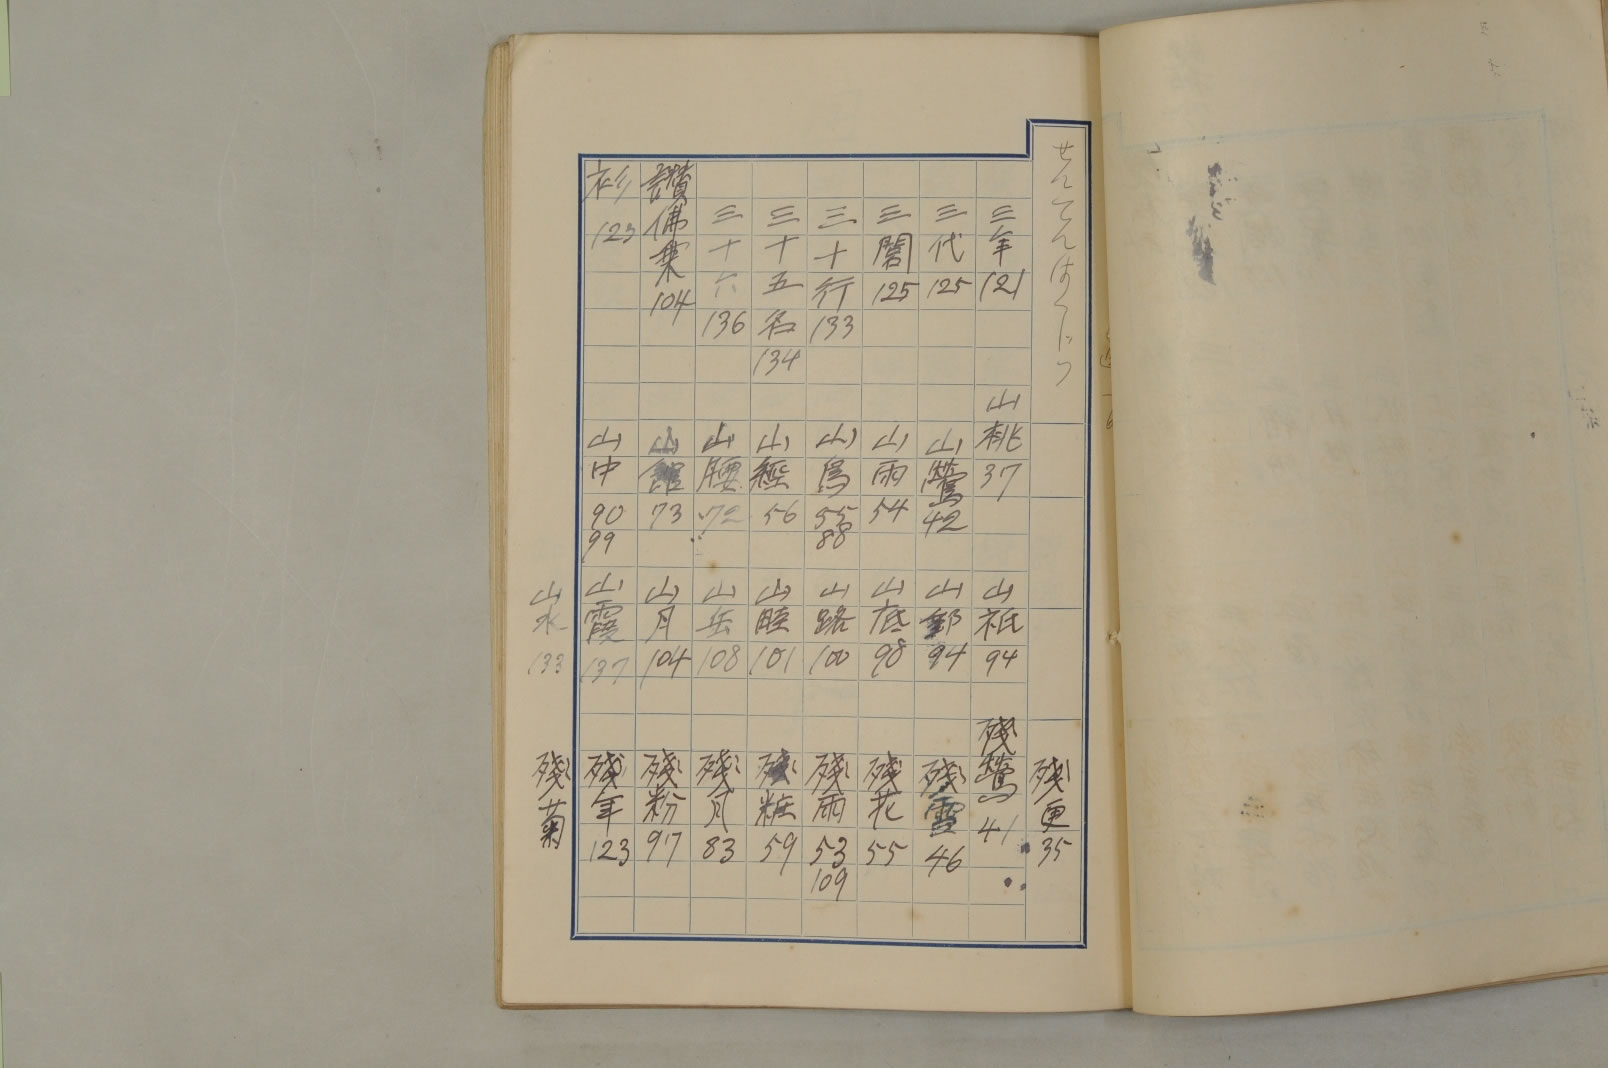 三年 121
三代 125
三閣 125
三十行 133
三十五名 134
三十六 136
讃佛乗 104
衫 123
山桃 37
山鶯 42
山雨 54
山鳥 55 88
山經 56
山腰 72
山館 73
山中 90 99
山祇 94
山郵 94
山底 98
山路 100
山睦 101
山岳 108
山月 104
山霞 137
山水 133
残更 35
残鶯 41
残雪 46
残花 55
残雨 53 109
残粧 59
残月 83
残粉 97
残年 123
残菊